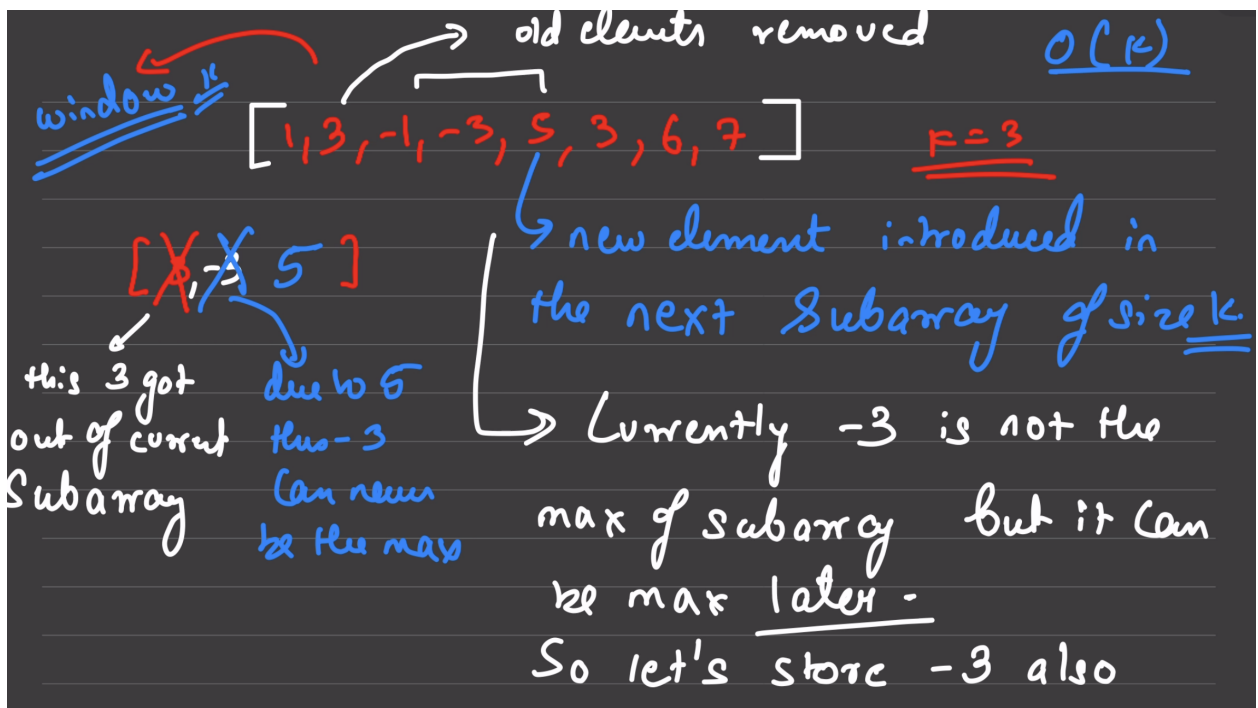 old elements removed
O(k)
window k
[1, 3, -1, -3, 5, 3, 6, 7]
k = 3
[3, -3 5]
new element introduced in
the next Subarray of size k.
this 3 got
out of current
Subarray
due to 5
this -3
Can never
be the max
Currently -3 is not the
max of subarray but it can
be max later.
So let's store -3 also